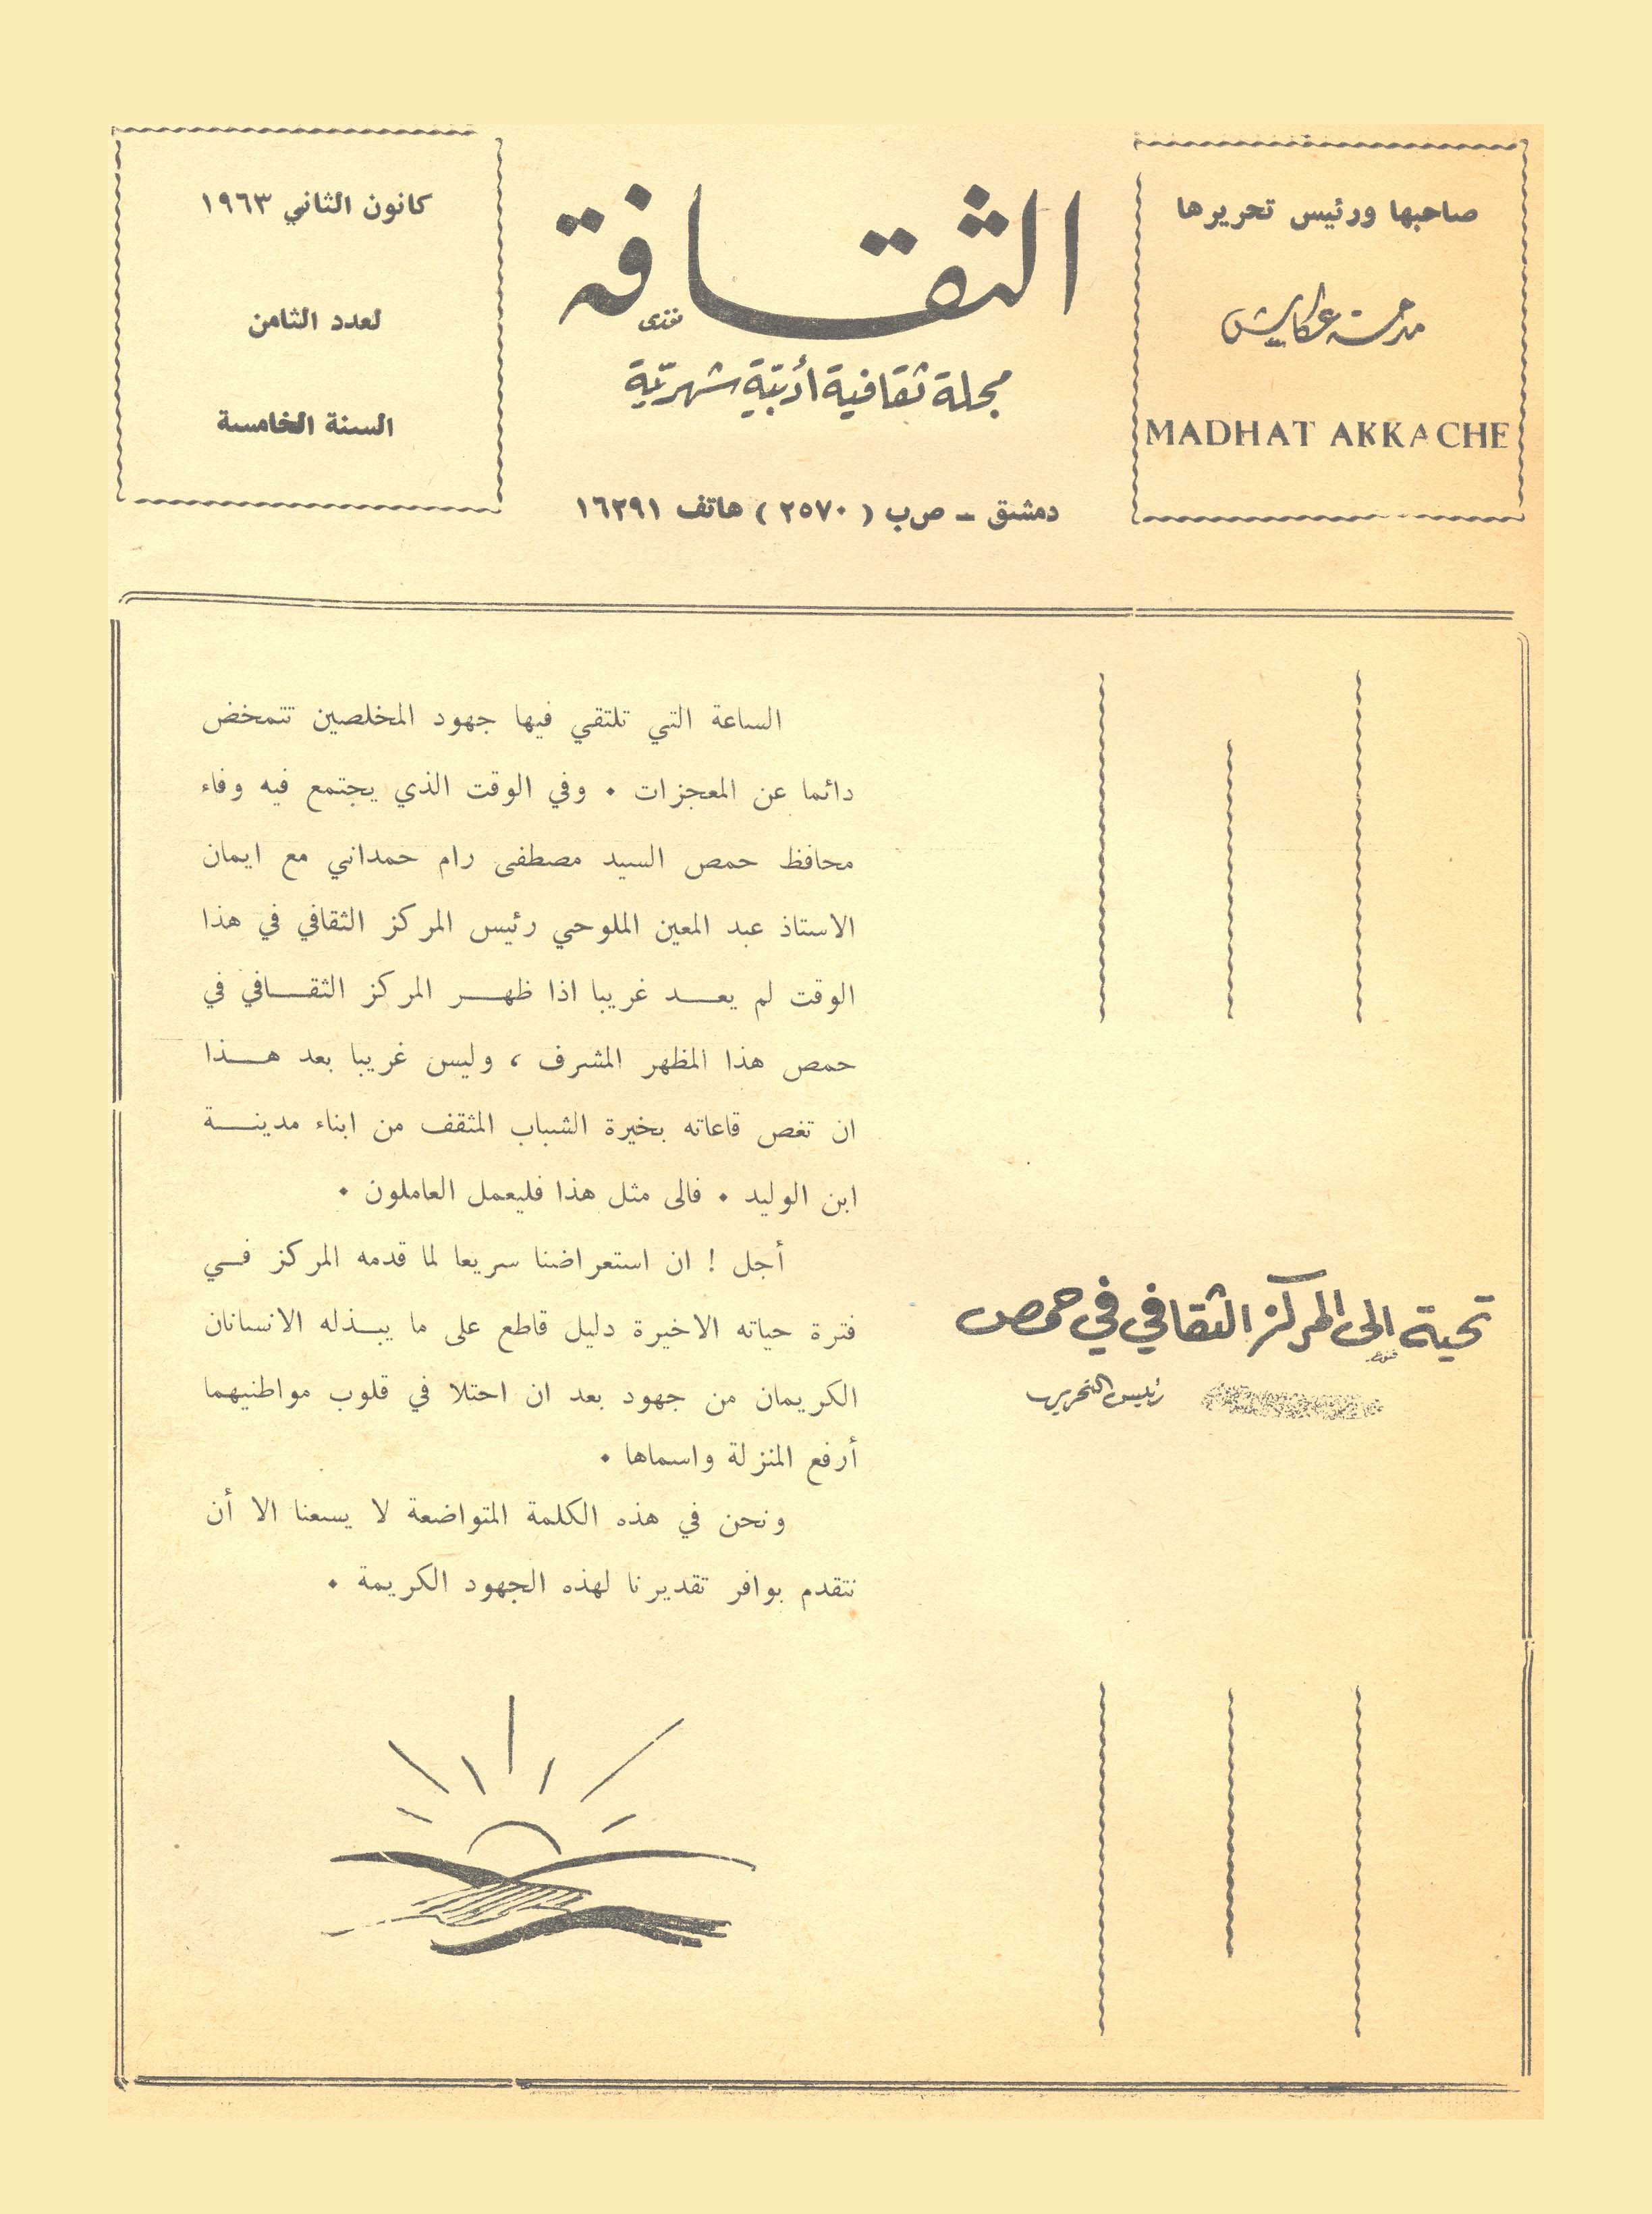 صاحبها ورئيس تحريرها
مدحة عكاش
MADHAT AKKACHE
الثقافة
مجلة ثقافية أدبية شهرية
دمشق - ص ب ( ٢٥٧٠ ) هاتف ١٦٢٩١
كانون الثاني ١٩٦٣
لعدد الثامن
السنة الخامسة
تحية إلى المركز الثقافي في حمص
رئيس التحرير
الساعة التي تلتقي فيها جهود المخلصين تتمخض
دائما عن المعجزات . وفي الوقت الذي يجتمع فيه وفاء
محافظ حمص السيد مصطفى رام حمداني مع ايمان
الاستاذ عبد المعين الملوحي رئيس المركز الثقافي في هذا
الوقت لم يعــد غريبا اذا ظهــر المركز الثقــافي في
حمص هذا المظهر المشرف ، وليس غريبا بعد هــذا
ان تغص قاعاته بخيرة الشباب المثقف من ابناء مدينــة
ابن الوليد . فالى مثل هذا فليعمل العاملون .
أجل ! ان استعراضنا سريعا لما قدمه المركز فــي
فترة حياته الاخيرة دليل قاطع على ما يبــذله الانسانان
الكريمان من جهود بعد ان احتلا في قلوب مواطنيهما
أرفع المنزلة واسماها .
ونحن في هذه الكلمة المتواضعة لا يسعنا الا أن
نتقدم بوافر تقديرنا لهذه الجهود الكريمة .